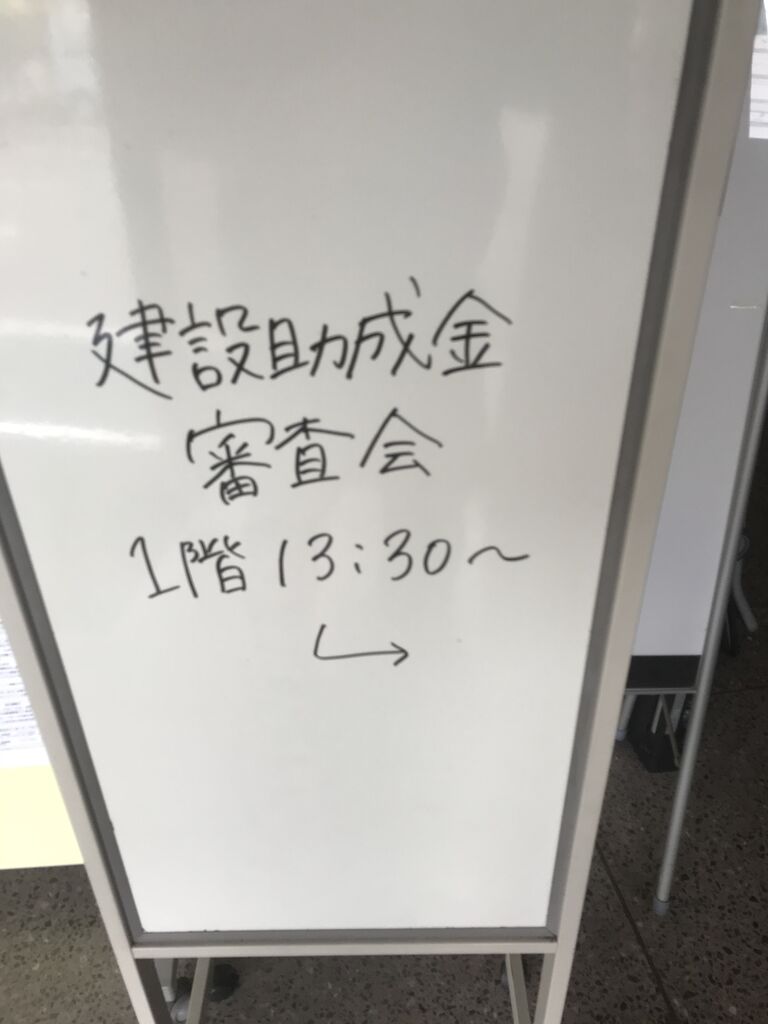 建設助成金
審査会
1階 13:30〜